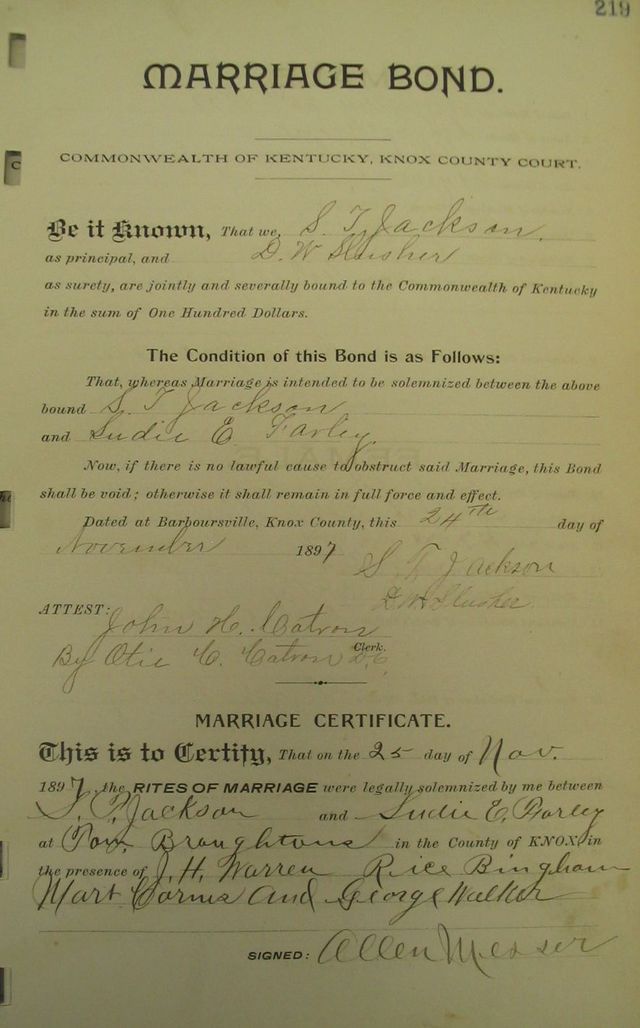 219
MARRIAGE BOND.
COMMONWEALTH OF KENTUCKY, KNOX COUNTY COURT.
Be it Known, That we, S. T. Jackson.
as principal, and D. W Slusher
as surety, are jointly and severally bound to the Commonwealth of Kentucky
in the sum of One Hundred Dollars.
The Condition of this Bond is as Follows:
That, whereas Marriage is intended to be solemnized between the above
bound S. T Jackson
and Sudie E Farley.
Now, if there is no lawful cause to obstruct said Marriage, this Bond
shall be void; otherwise it shall remain in full force and effect.
Dated at Barboursville, Knox County, this 24th day of
November 1897
S. T Jackson
D W Slusher
ATTEST: John H. Catron
Clerk.
By Otie C. Catron D.C.
MARRIAGE CERTIFICATE.
This is to Certify, That on the 25 day of Nov.
1897, the RITES OF MARRIAGE were legally solemnized by me between
S. T. Jackson and Sudie E. Farley
at Tom Broughtons in the County of KNOX, in
the presence of J. H. Warren Rice Bingham
Mart and George Walker
SIGNED: Allen Messer